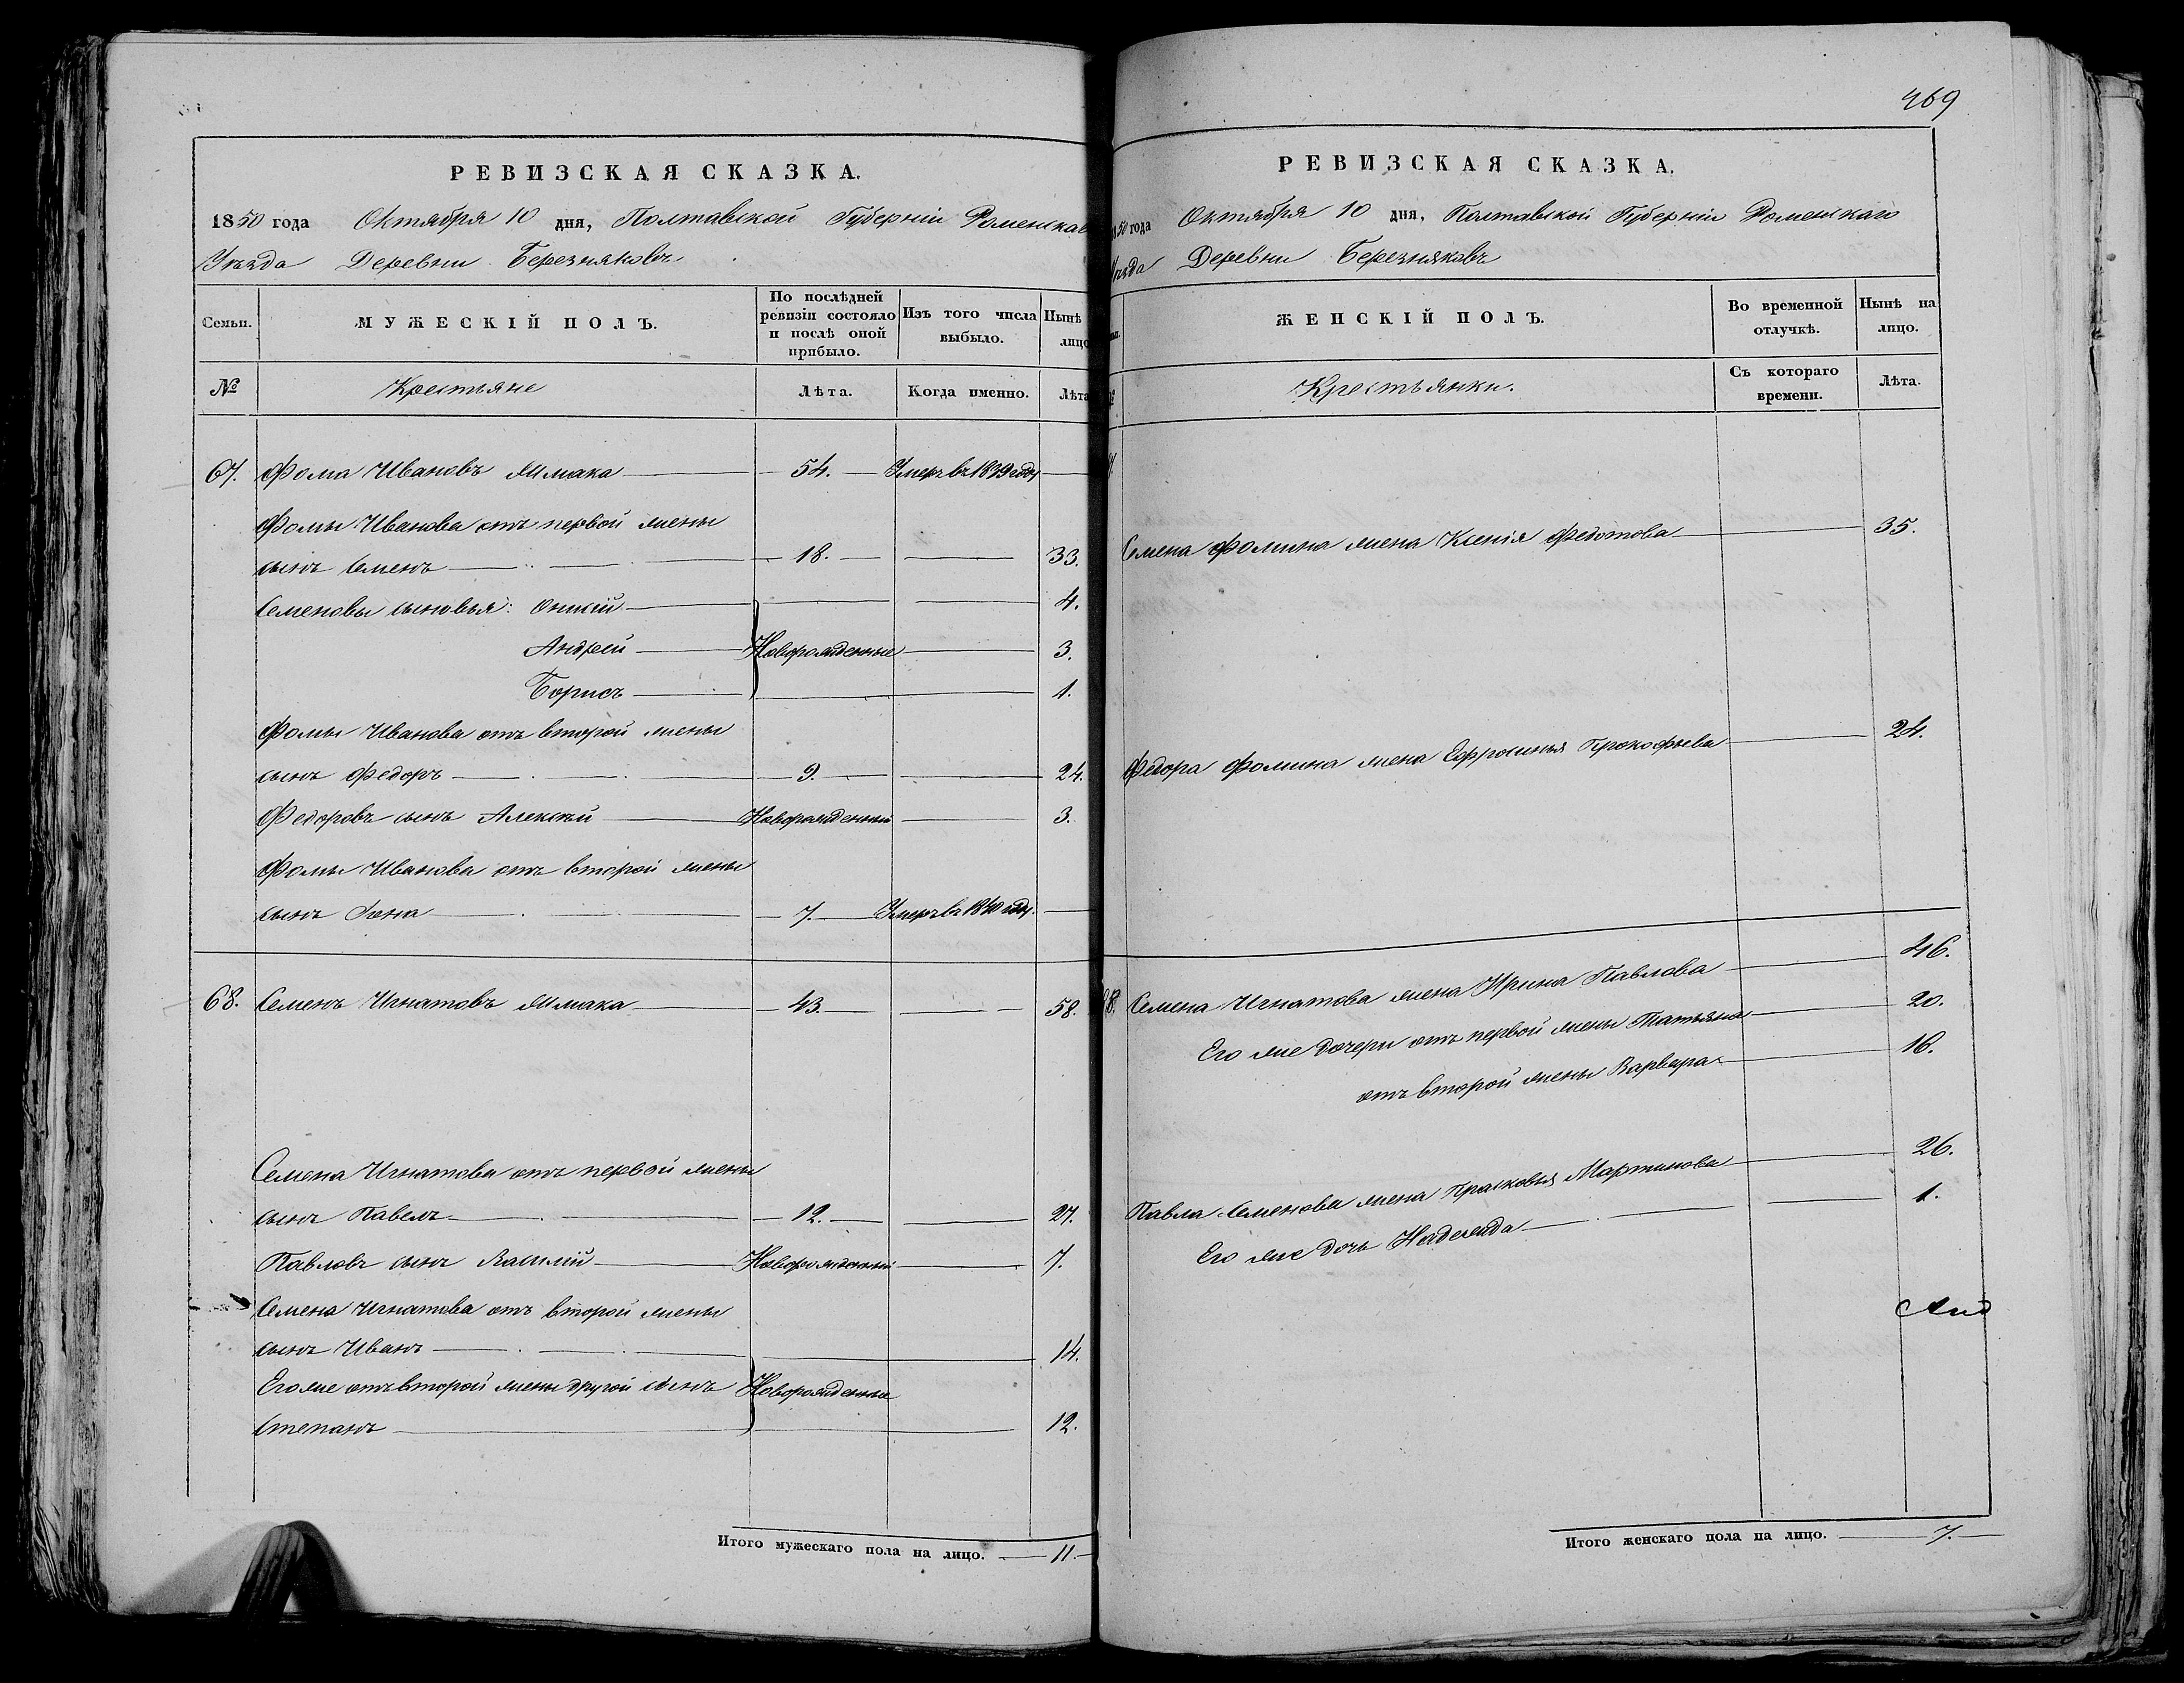 РЕВИЗСКАЯ СКАЗКА.
1850 года Октября 10 дня, Полтавской Губерніи Роменскаго
Уѣзда Деревни Березняковъ
Семьи.
МУЖЕСКІЙ ПОЛЪ.
По послѣдней ревизіи состояло и послѣ оной прибыло.
Изъ того числа выбыло.
Нынѣ лицо
№
Крестьяне
Лѣта.
Когда именно.
Лѣта
67. Фома Ивановъ 54. Умеръ въ 1839 году
Фомы Иванова отъ первой жены
сынъ Семенъ 18. 33.
Семеновы сыновья: 4.
Андрей Новорожденные 3.
Борисъ 1.
Фомы Иванова отъ второй жены
сынъ Федоръ 9. 24.
Федоровъ сынъ Алексѣй Новорожденный 3.
Фомы Иванова отъ второй жены
сынъ 7. Умеръ въ 1840 году.
68. Семенъ Игнатовъ 43. 58.
Семена Игнатова отъ первой жены
сынъ Павелъ 12. 27.
Павловъ сынъ Василій Новорожденный 7.
Семена Игнатова отъ второй жены
сынъ Иванъ 14.
Его же отъ второй жены другой сынъ Новорожденные
Степанъ 12.
Итого мужескаго пола на лицо. 11.
469
РЕВИЗСКАЯ СКАЗКА.
1850 года Октября 10 дня, Полтавской Губерніи Роменскаго
Уѣзда Деревни Березняковъ
ЖЕНСКІЙ ПОЛЪ.
Во временной отлучкѣ.
Нынѣ на лицо.
Крестьянки.
Съ котораго времени.
Лѣта.
Семена Фомина жена Ксенія Федотова 35.
Федора Фомина жена Ефросинья Прокофьева 24.
68. Семена Игнатова жена Ирина Павлова 46.
Его же дочери отъ первой жены Татьяна 20.
отъ второй жены Варвара 16.
Павла Семенова жена Прасковья Мартинова 26.
Его же дочь Надежда 1.
Итого женскаго пола на лицо. 7.